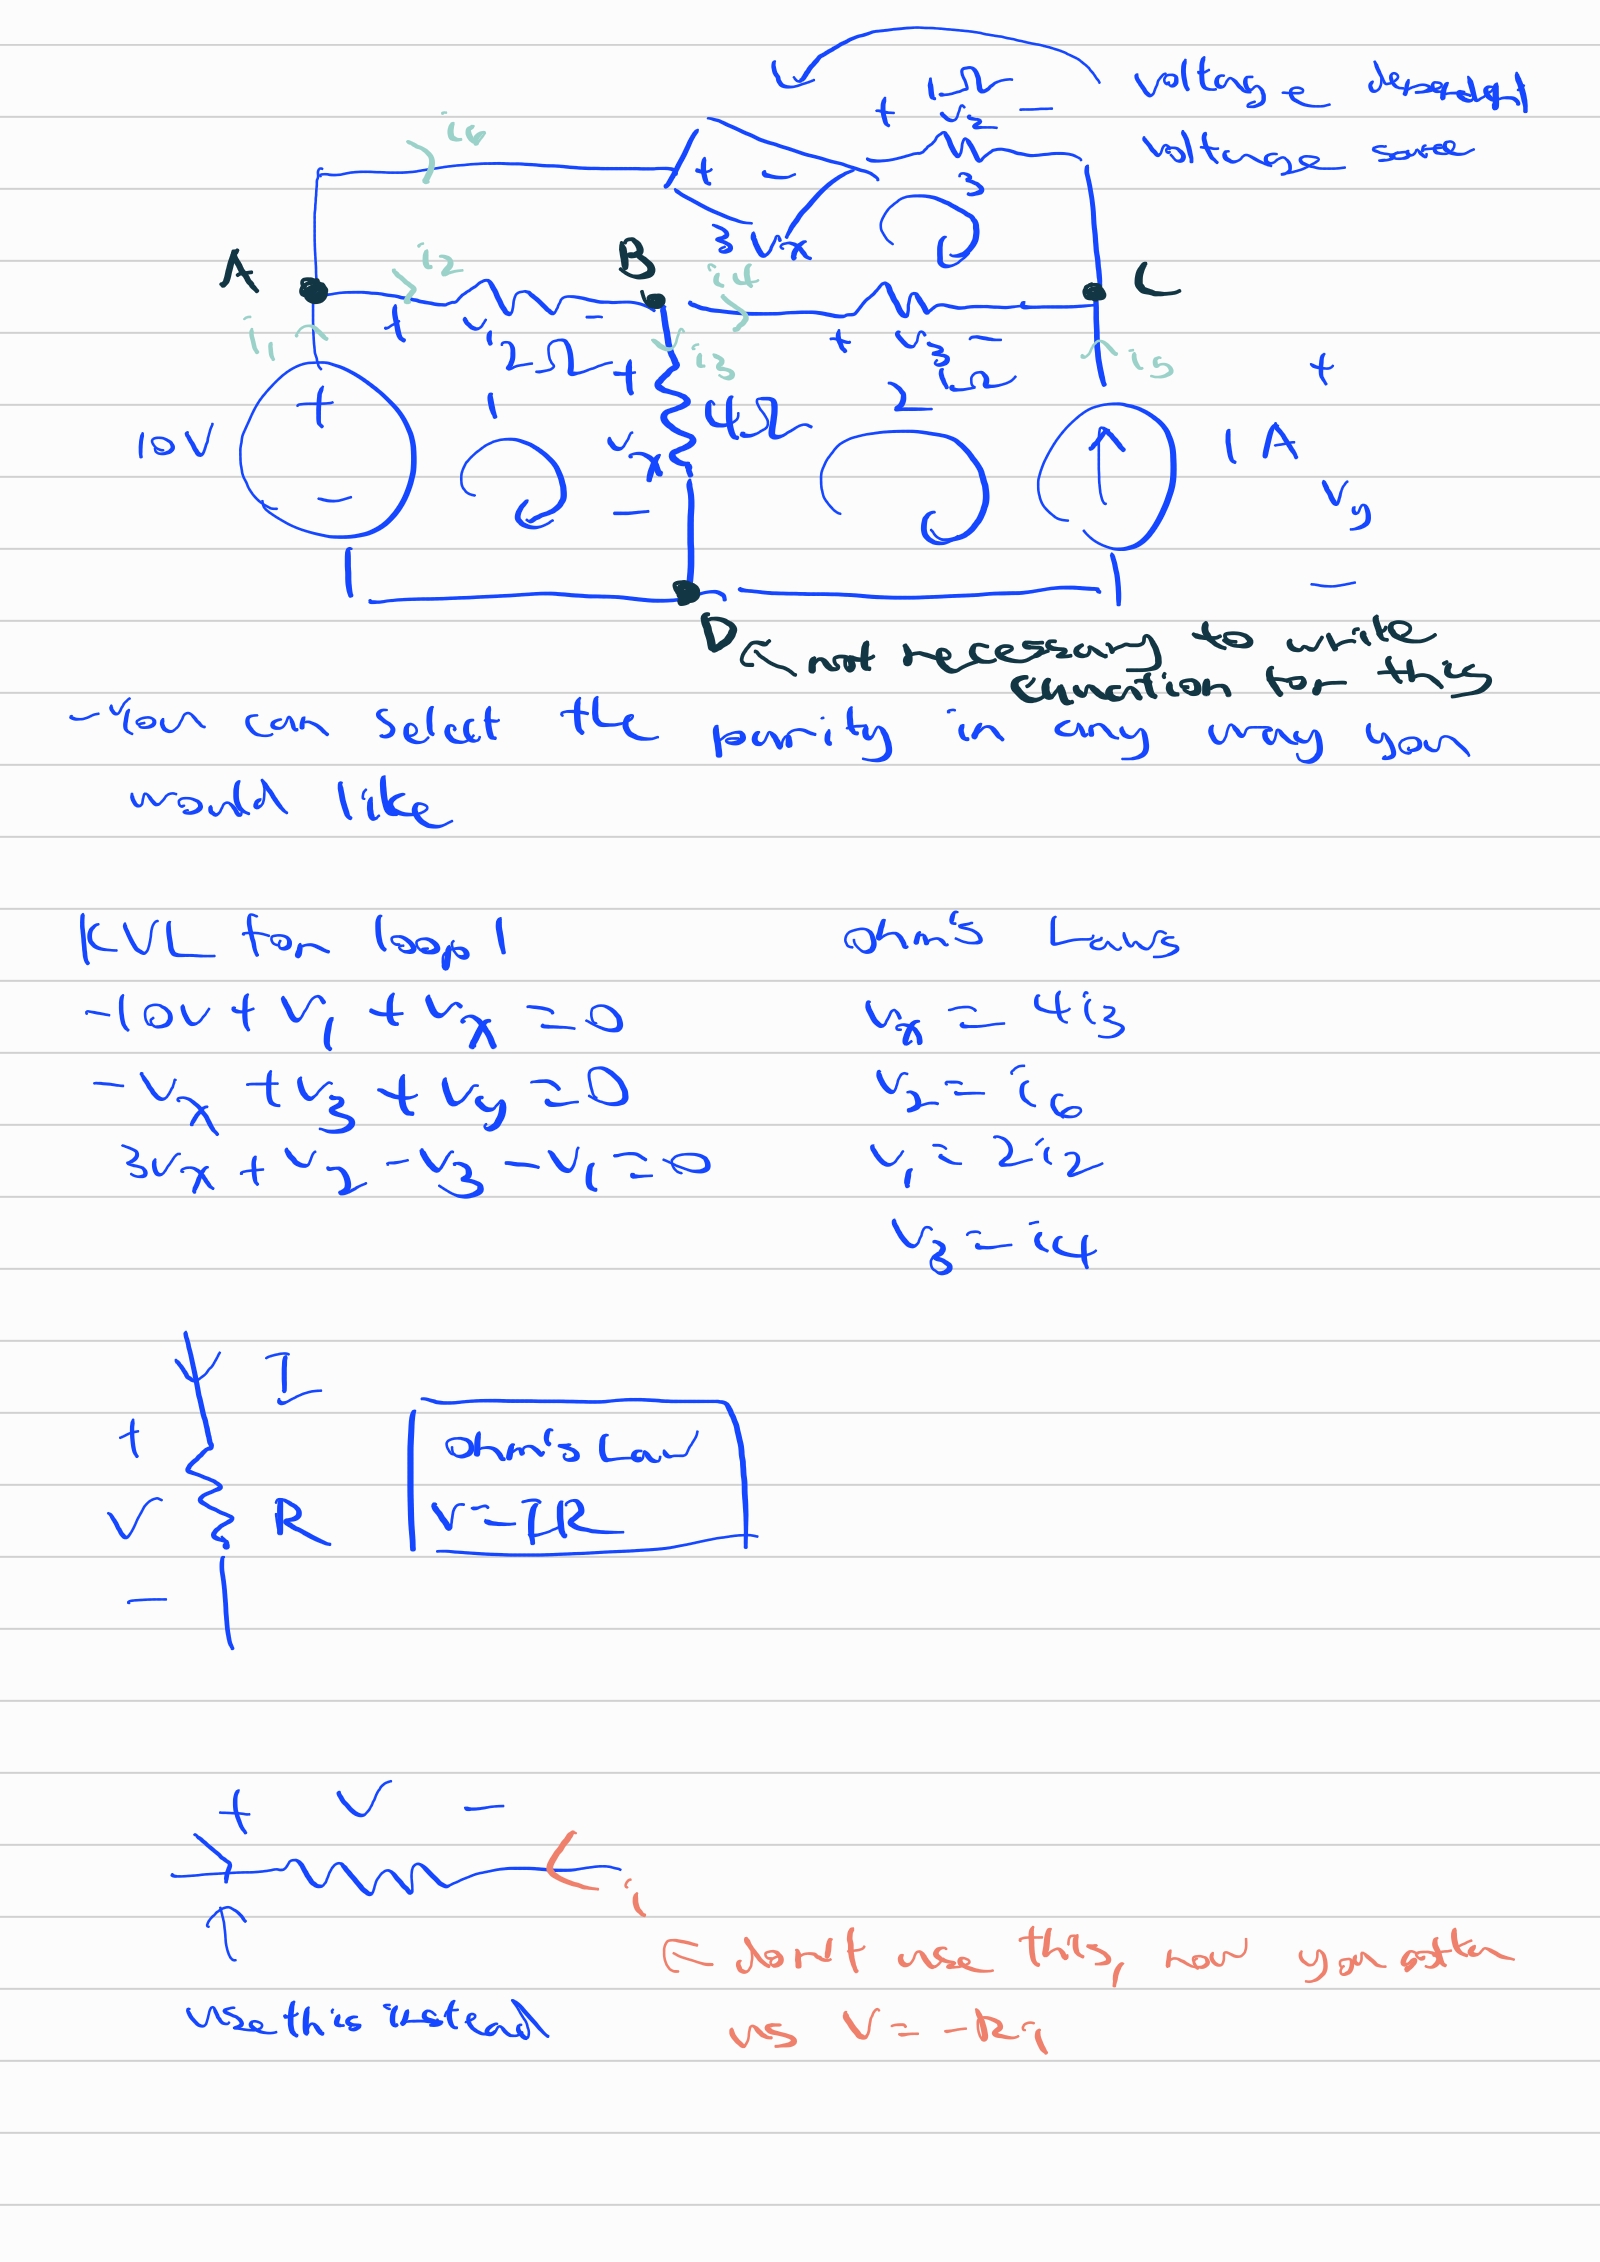 voltage dependent
voltage source
1Ω
+ v2 -
i6
+ -
3Vx
3
A
i2
B
i4
C
i1
+ v1 -
2Ω
i3
+ v3 -
1Ω
i5
+
10V
+
-
1
+
vx
-
4Ω
2
1 A
vy
-
D
← not necessary to write
equation for this
- You can select the parity in any way you
would like
KVL for loop 1
-10v + v1 + vx = 0
-vx + v3 + vy = 0
3vx + v2 - v3 - v1 = 0
ohm's Laws
vx = 4i3
v2 = i6
v1 = 2i2
v3 = i4
I
+
V
-
R
ohm's Law
V = IR
+ V -
i
use this instead
← don't use this, now you
us V = -Ri